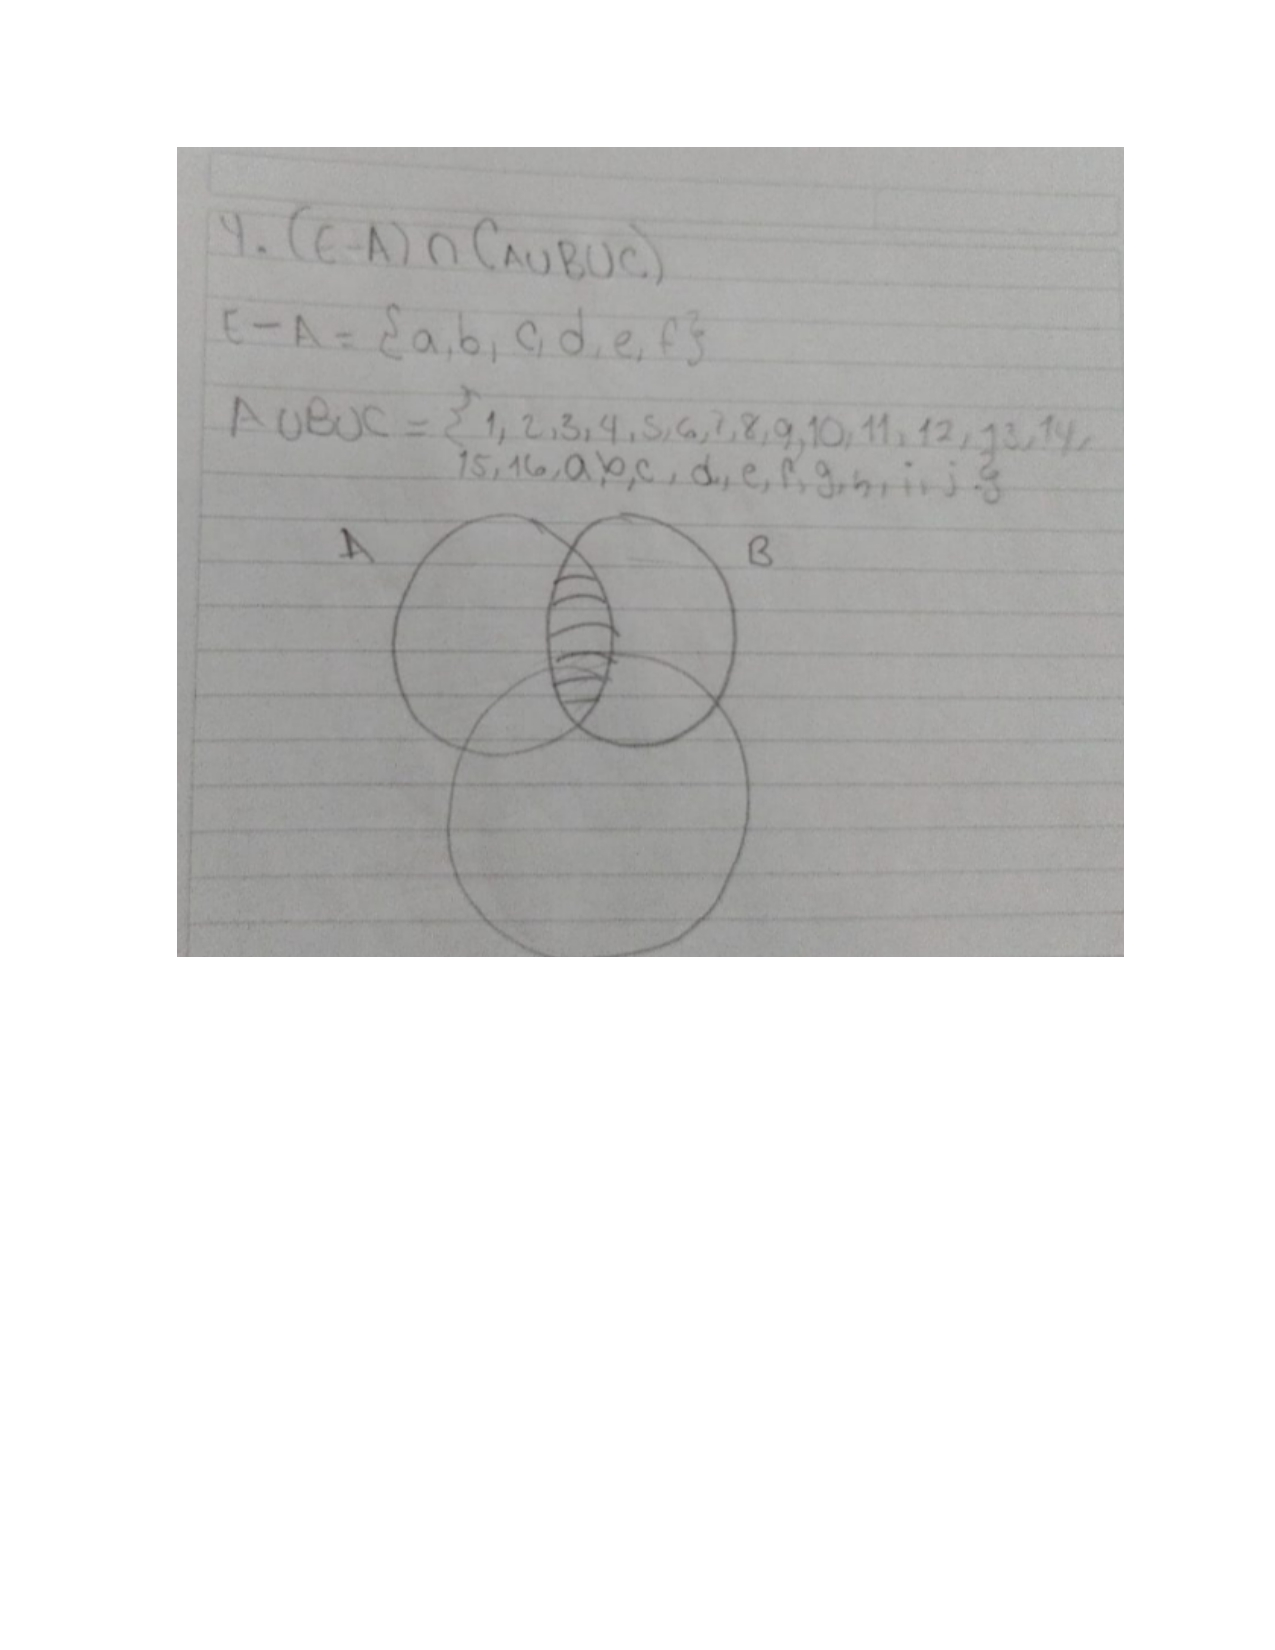 4. (E-A) ∩ (A∪B∪C)
E-A = {a, b, c, d, e, f}
A∪B∪C = {1, 2, 3, 4, 5, 6, 7, 8, 9, 10, 11, 12, 13, 14,
15, 16, a, b, c, d, e, f, g, h, i, j}
A B